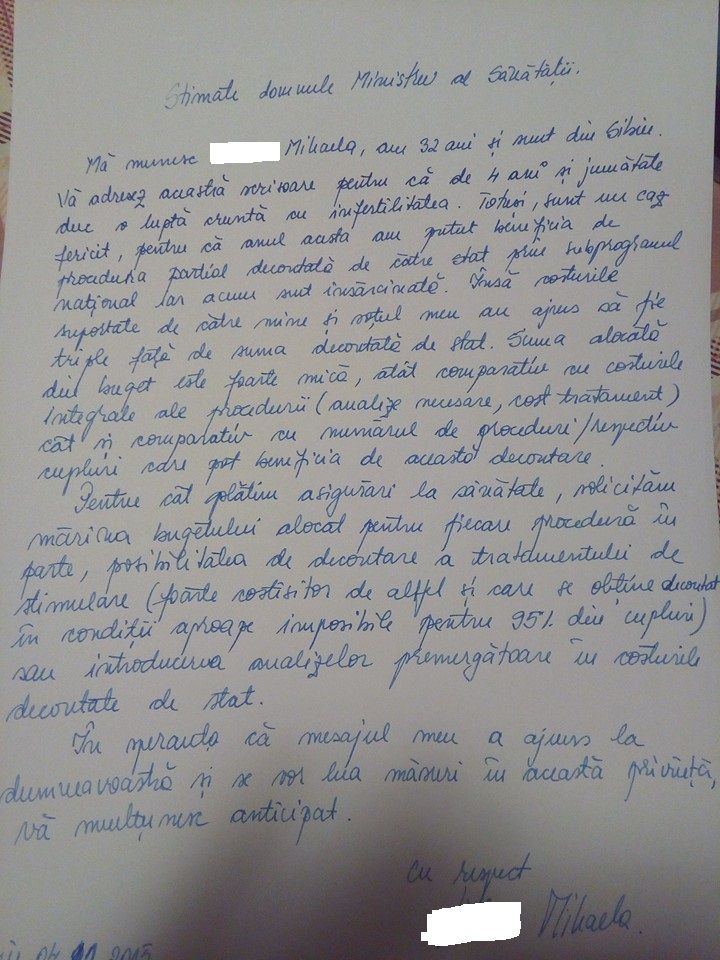 Stimate domnule Ministru al Sănătății.
Mă numesc Mihaela, am 32 ani și sunt din Sibiu.
Vă adresez această scrisoare pentru că de 4 ani și jumătate
duc o luptă cruntă cu infertilitatea. Totuși, sunt un caz
fericit, pentru că anul acesta am putut beneficia de
procedura parțial decontată de către stat prin subprogramul
național iar acum sunt însărcinată. Însă costurile
suportate de către mine și soțul meu au ajuns să fie
triple față de suma decontată de stat. Suma alocată
din buget este foarte mică, atât comparativ cu costurile
integrale ale procedurii (analize necesare, cost tratament)
cât și comparativ cu numărul de proceduri/respectiv
cupluri care pot beneficia de această decontare.
Pentru cât plătim asigurări la sănătate, solicităm
mărirea bugetului alocat pentru fiecare procedură în
parte, posibilitatea de decontare a tratamentului de
stimulare (foarte costisitor de altfel și care se obține decontat
în condiții aproape imposibile pentru 95% din cupluri)
sau introducerea analizelor premergătoare în costurile
decontate de stat.
În speranța că mesajul meu a ajuns la
dumneavoastră și se vor lua măsuri în această privință,
vă mulțumesc anticipat.
Cu respect
Mihaela.
2015